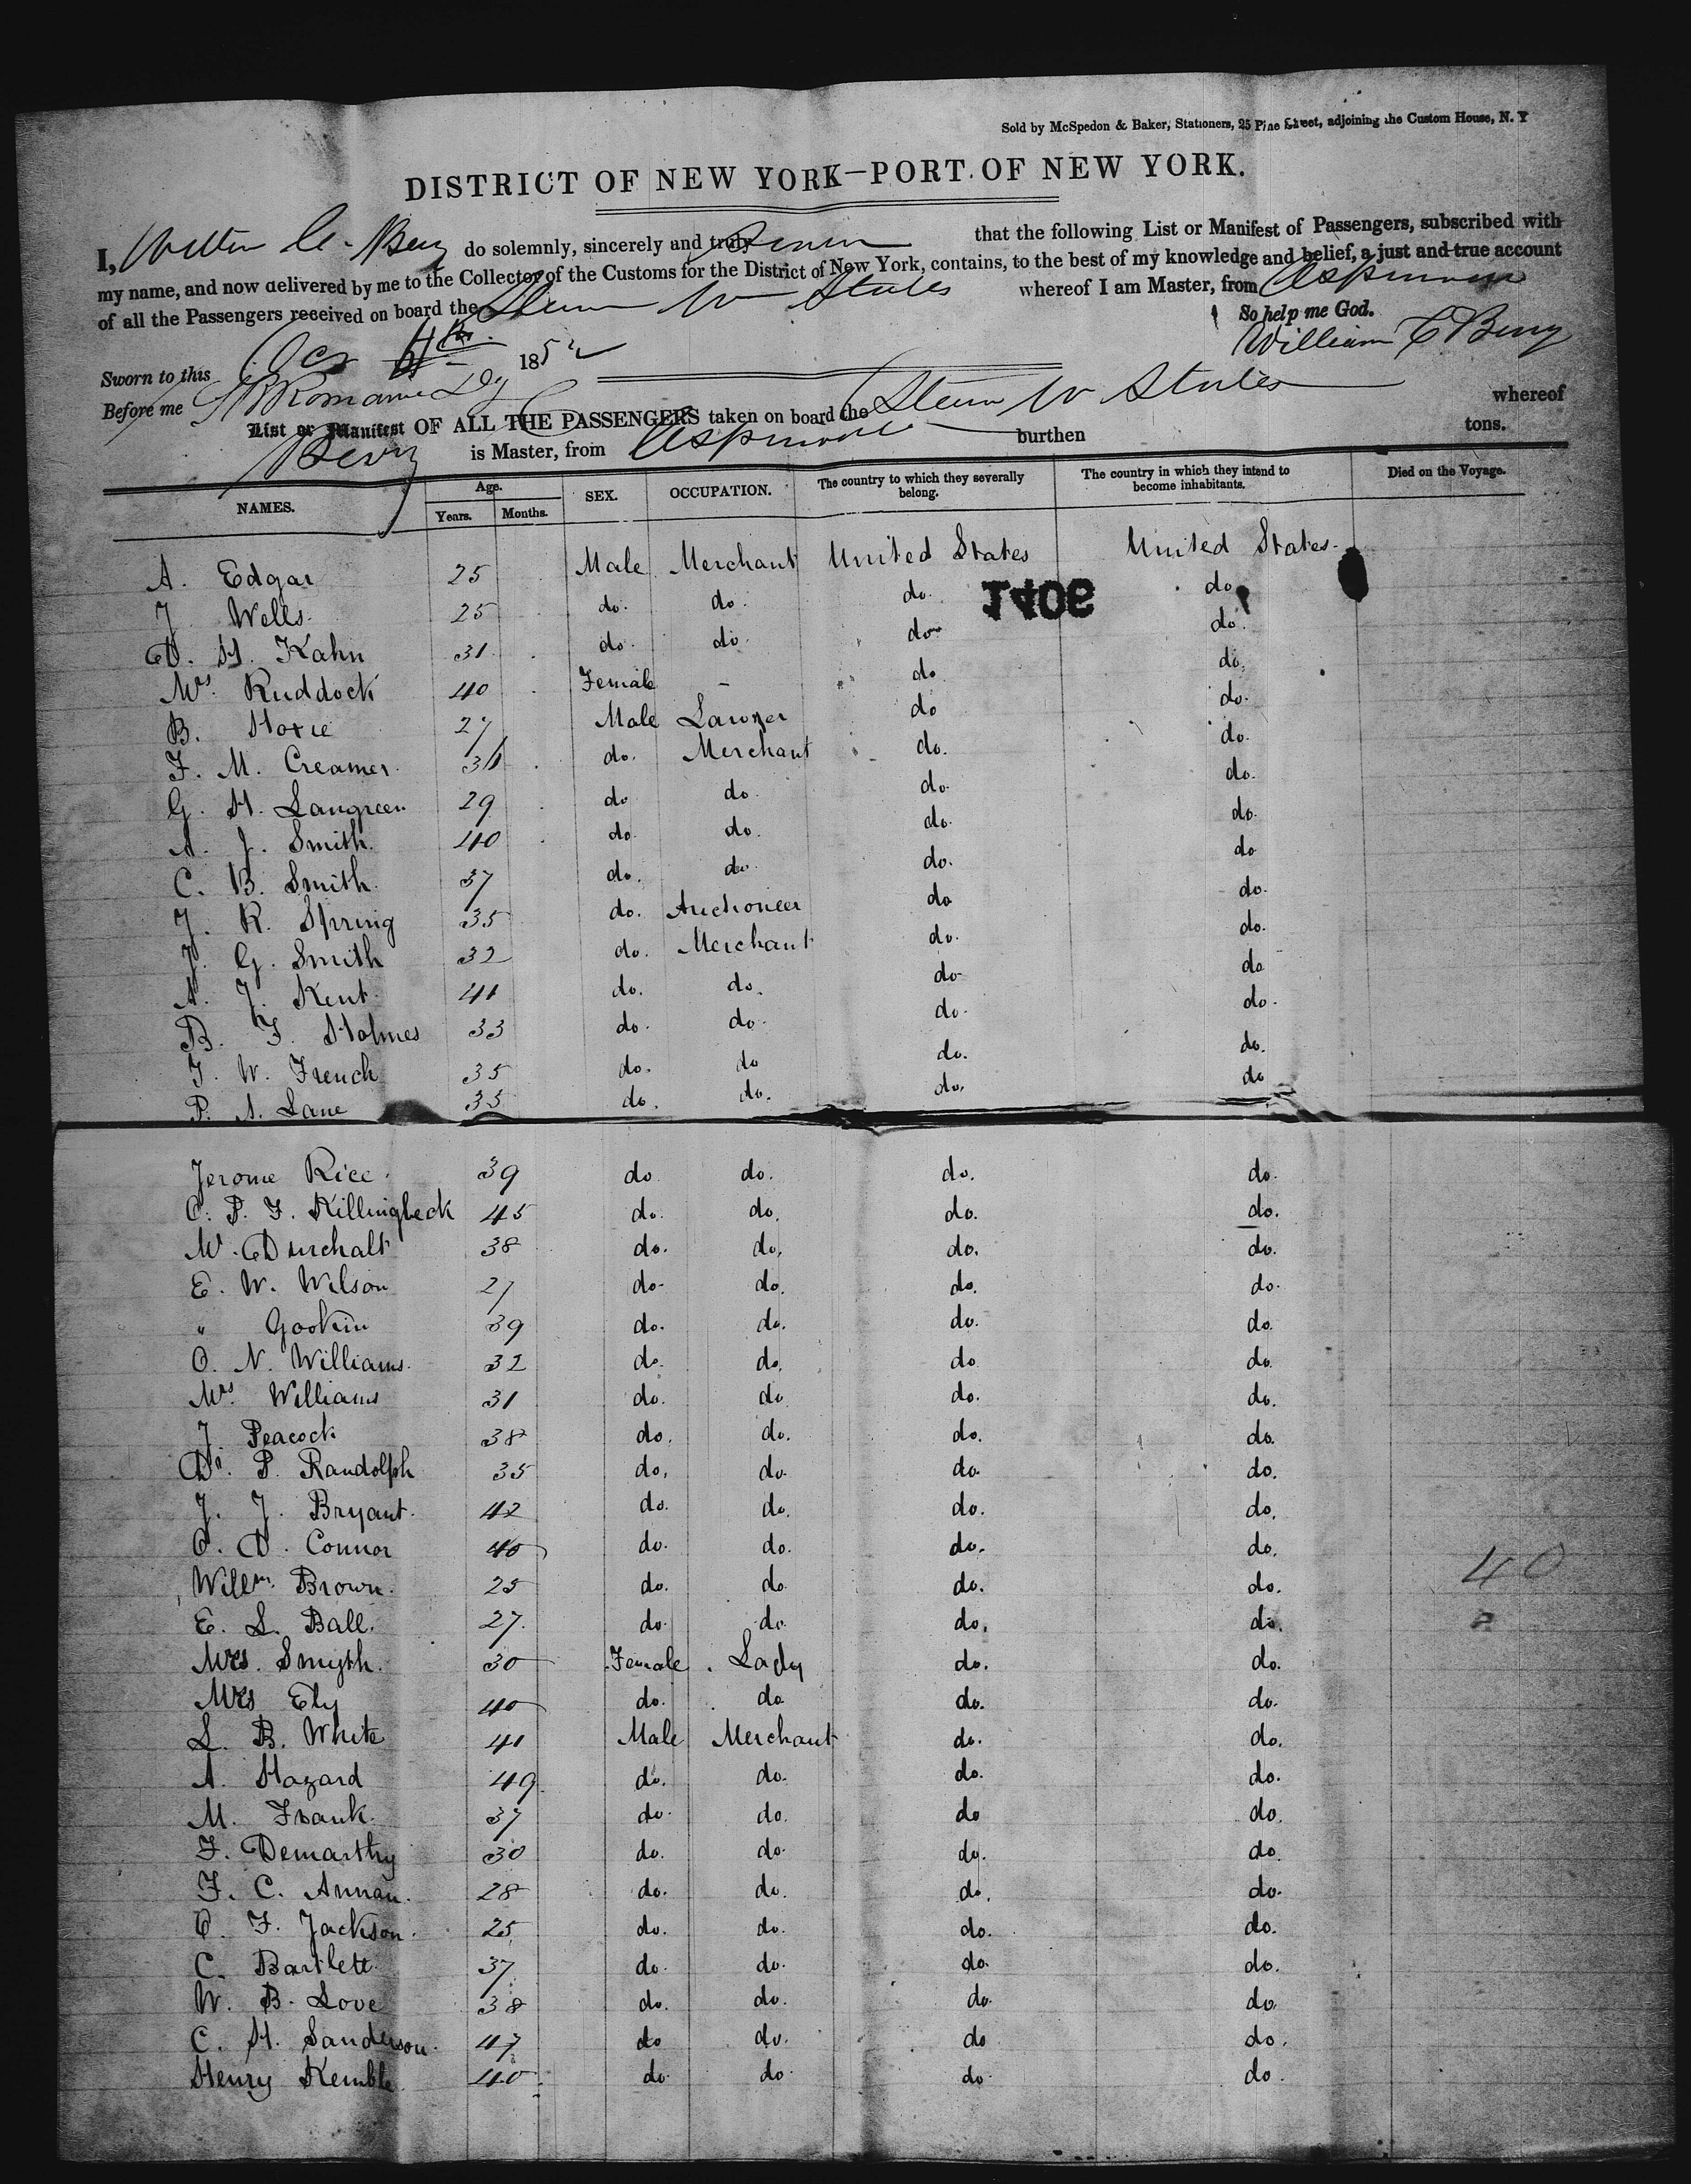 Sold by McSpedon & Baker, Stationers, 25 Pine Street, adjoining the Custom House, N. Y
DISTRICT OF NEW YORK—PORT OF NEW YORK.
I, do solemnly, sincerely and truly that the following List or Manifest of Passengers, subscribed with
my name, and now delivered by me to the Collector of the Customs for the District of New York, contains, to the best of my knowledge and belief, a just and true account
of all the Passengers received on board the States whereof I am Master, from
So help me God.
Sworn to this 185 William C Berry
Before me
List or Manifest OF ALL THE PASSENGERS taken on board the States whereof
Berry is Master, from burthen tons.
NAMES. Age. Years. Months. SEX. OCCUPATION. The country to which they severally belong. The country in which they intend to become inhabitants. Died on the Voyage.
A. Edgar 25 Male Merchant United States United States
J Wells. 25 do. do. do. do
1406
D. H. Kahn 31 do. do. do do.
Mrs. Ruddock 40 Female - do do.
B. Hoxie 27 Male Lawyer do do.
F. M. Creamer. do. Merchant do. do.
G. H. 29 do do. do. do.
A. J. Smith. 40 do. do. do. do.
C. B. Smith. 37 do. do do. do
J. R. Spring 35 do. Auctioneer do do.
J. G. Smith 32 do. Merchant do. do.
A. J. Kent. 41 do. do. do do
B. F. Holmes 33 do. do. do. do.
J. W. French 35 do. do do. do.
P. A. Lane 35 do. do. do. do
Jerome Rice. 39 do do. do. do.
C. P. F. Killingbeck 45 do. do. do. do.
M. 38 do. do. do. do.
E. W. Wilson 27 do. do. do. do.
" Gookin 39 do. do. do. do.
O. N. Williams. 32 do. do. do. do.
Mrs Williams 31 do. do do. do.
J. Peacock 38 do. do. do. do.
Dr. P. Randolph 35 do. do. do. do.
J. J. Bryant. 42 do. do. do. do.
O. D. Connor 40 do. do. do. do.
Willm. Brown. 25 do. do. do. do.
40
E. L. Ball. 27. do. do. do. do.
Mrs. Smyth. 30 Female. Lady do. do.
Mrs Ely 40 do. do. do. do.
L. B. White 41 Male Merchant do. do.
A. Hazard 49. do. do. do. do.
M. Frank. 37 do. do. do do.
F. Demarthy 30 do. do. do. do.
F. C. Annan. 28 do. do. do. do.
O. F. Jackson. 25 do. do. do. do.
C. Bartlett. 37 do. do. do. do.
W. B. Love 38 do. do. do. do.
C. H. Sanderson. 47 do do. do do.
Henry Kemble. 40. do. do. do. do.